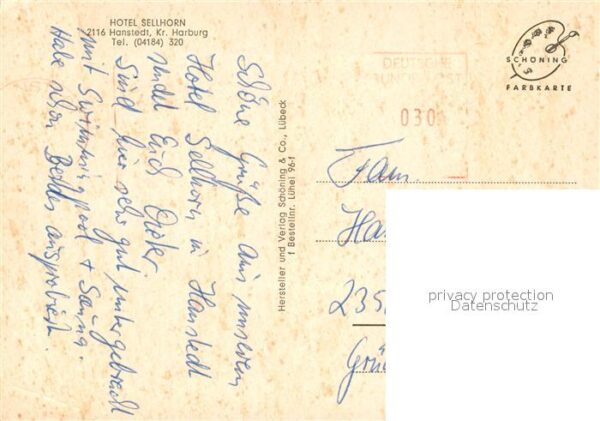 HOTEL SELLHORN
2116 Hanstedt, Kr. Harburg
Tel. (04184) 320
Schöne Grüße aus unserem
Hotel Sellhorn in Hanstedt
sendet Euch
Sind hier sehr gut untergebracht
mit Swimmingpool + Sauna.
Habe schon Beides ausprobiert.
Hersteller und Verlag Schöning & Co., Lübeck
1 Bestellnr. Lühei 96-f
DEUTSCHE
BUNDESPOST
030
SCHÖNING
FARBKARTE
Fam.
Ha
235
Grü
privacy protection
Datenschutz